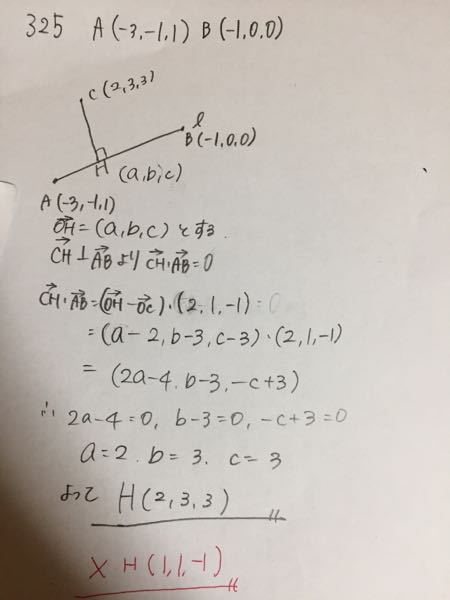 325 A(-3,-1,1) B(-1,0,0)
C(2,3,3)
l
B(-1,0,0)
H
(a,b,c)
A(-3,-1,1)
→OH=(a,b,c)とする.
→CH⊥→ABより→CH・→AB=0
→CH・→AB=(→OH-→OC)・(2,1,-1)=0
=(a-2,b-3,c-3)・(2,1,-1)
=(2a-4, b-3,-c+3)
∴ 2a-4=0, b-3=0, -c+3=0
a=2. b=3. c=3
よって H(2,3,3)
× H(1,1,-1)